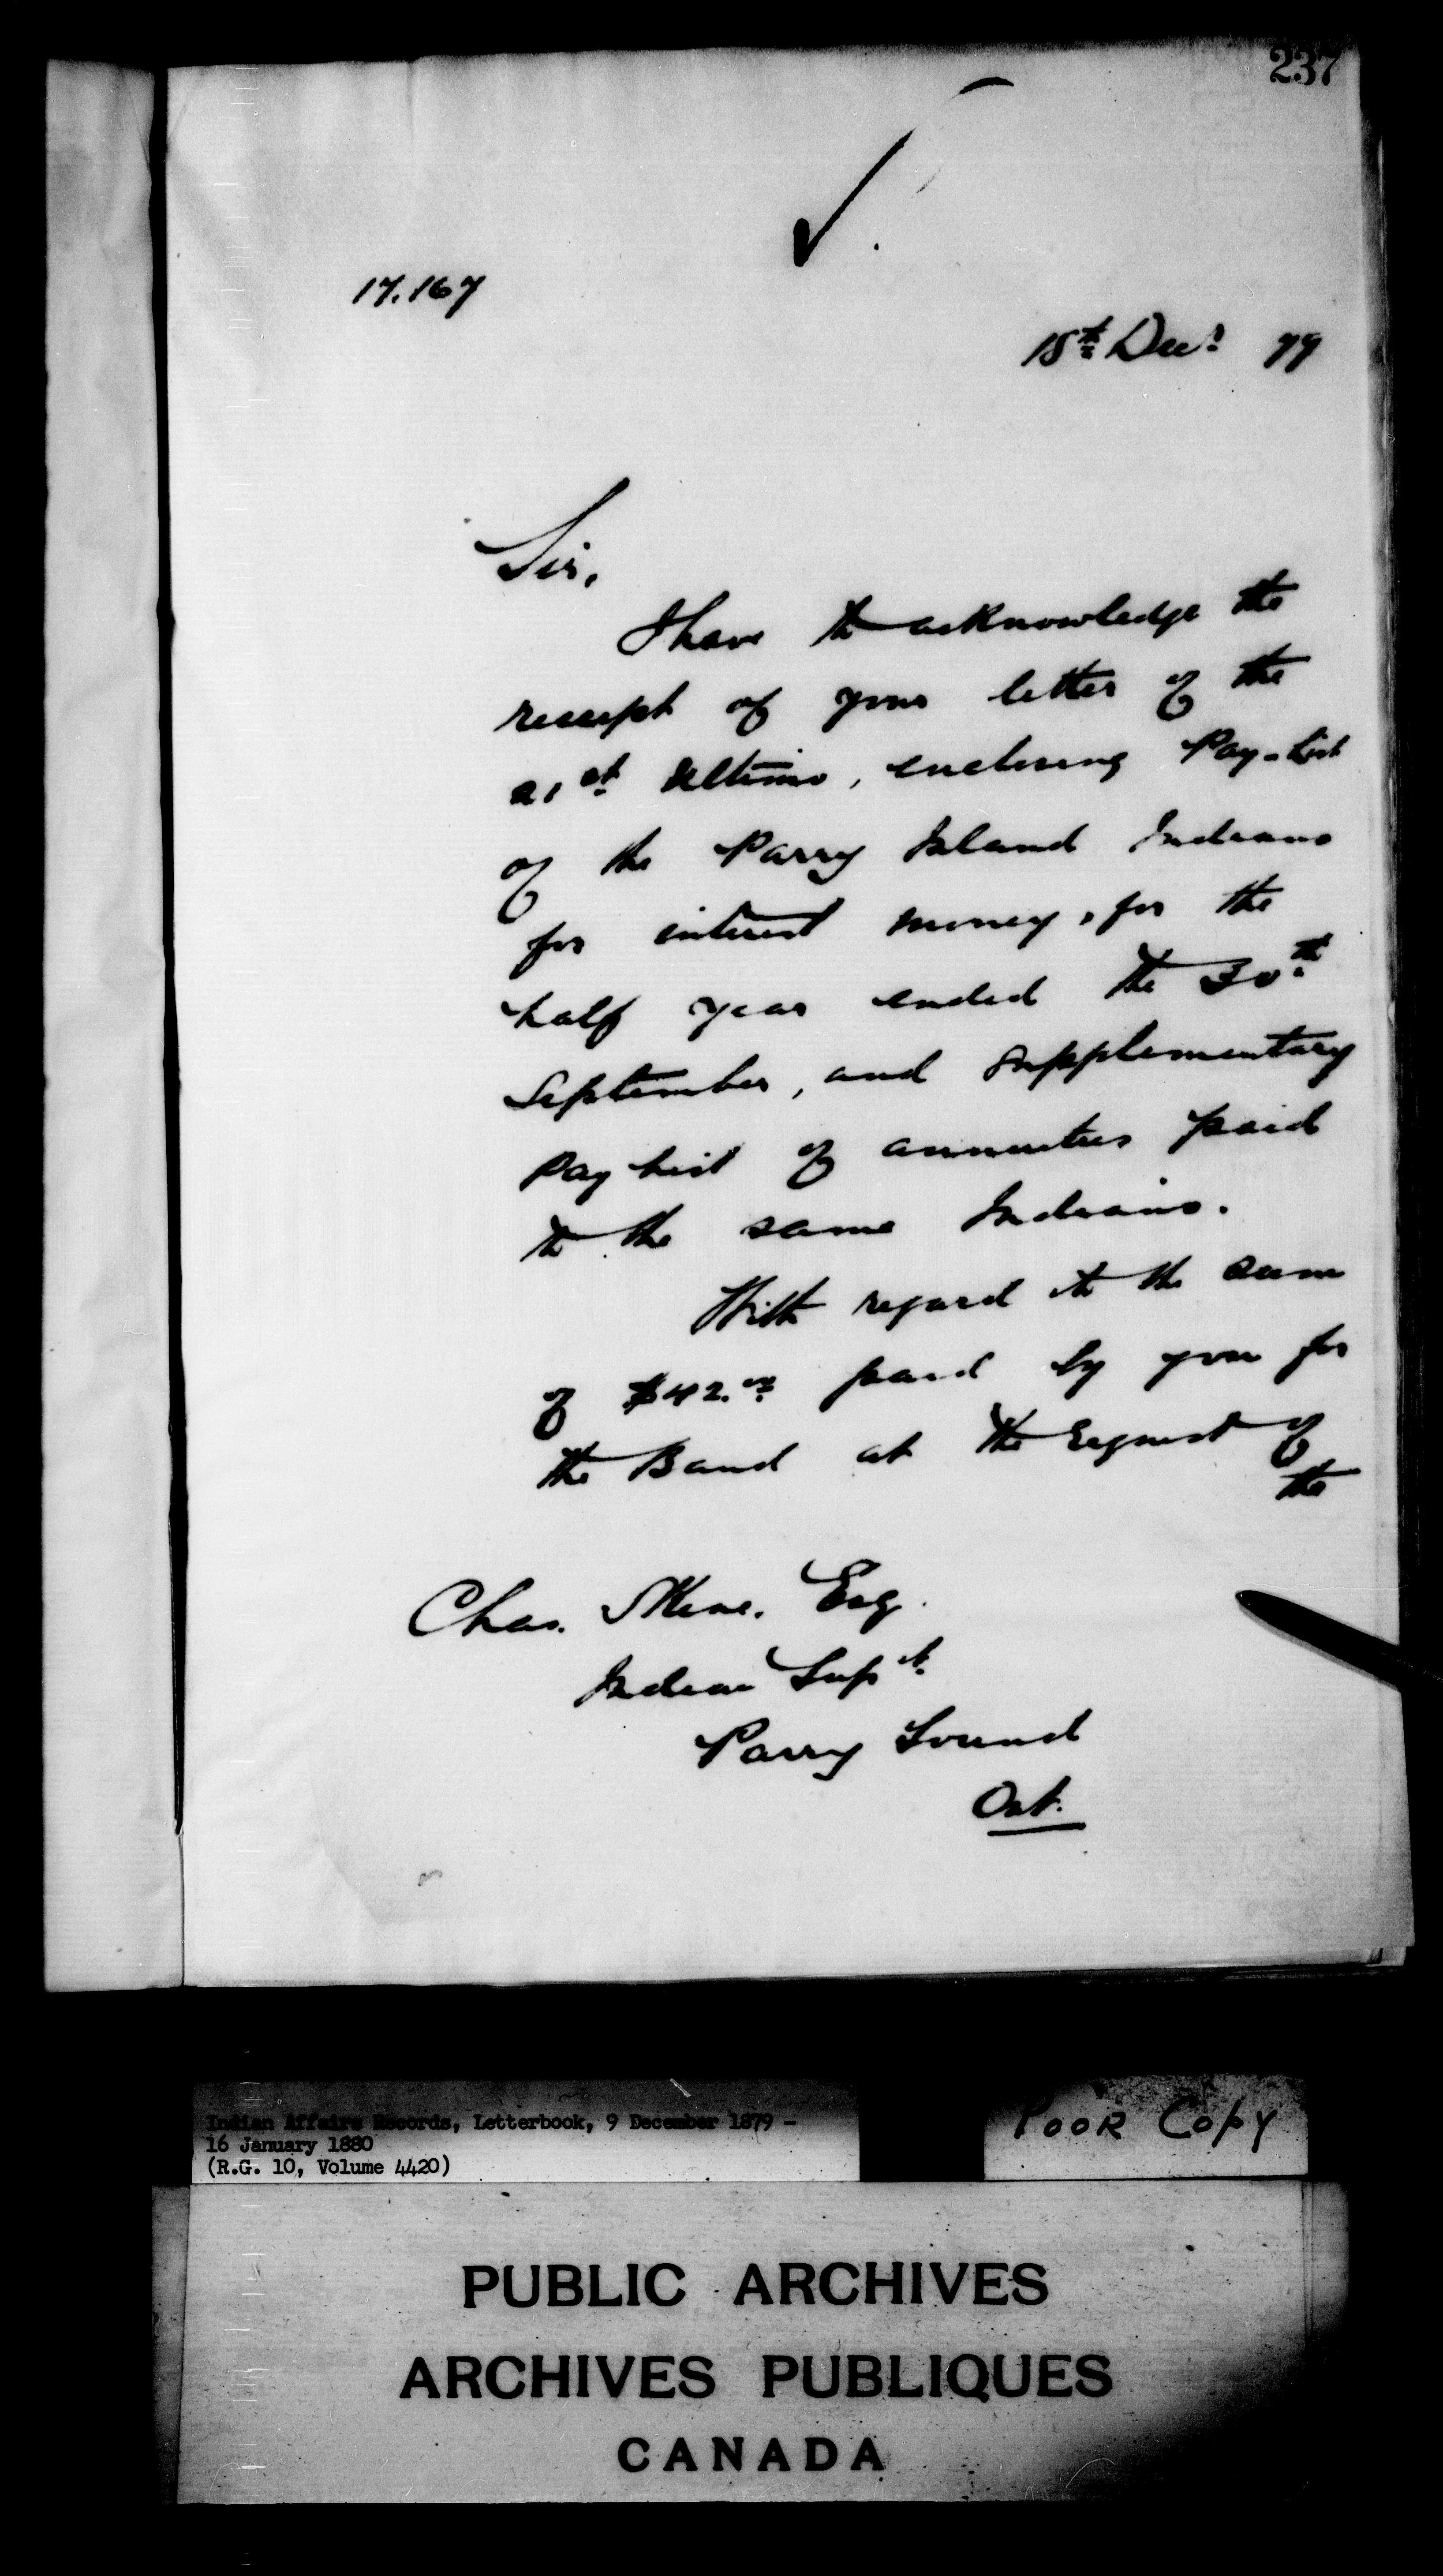 237
17.167
15th Decr 79
Sir,
I have to acknowledge the
receipt of your letter of the
21st Ultimo, enclosing Pay-List
of the Parry Island Indians
for interest money, for the
half year ended the 30th
September, and Supplementary
Pay List of annuities paid
to the same Indians.
With regard to the sum
of $42.00 paid by you for
the Band at the request of
the
Chas. Skene. Esq.
Indian Supt.
Parry Sound
Ont.
Indian Affairs Records, Letterbook, 9 December 1879 -
16 January 1880
(R.G. 10, Volume 4420)
POOR COPY
PUBLIC ARCHIVES
ARCHIVES PUBLIQUES
CANADA